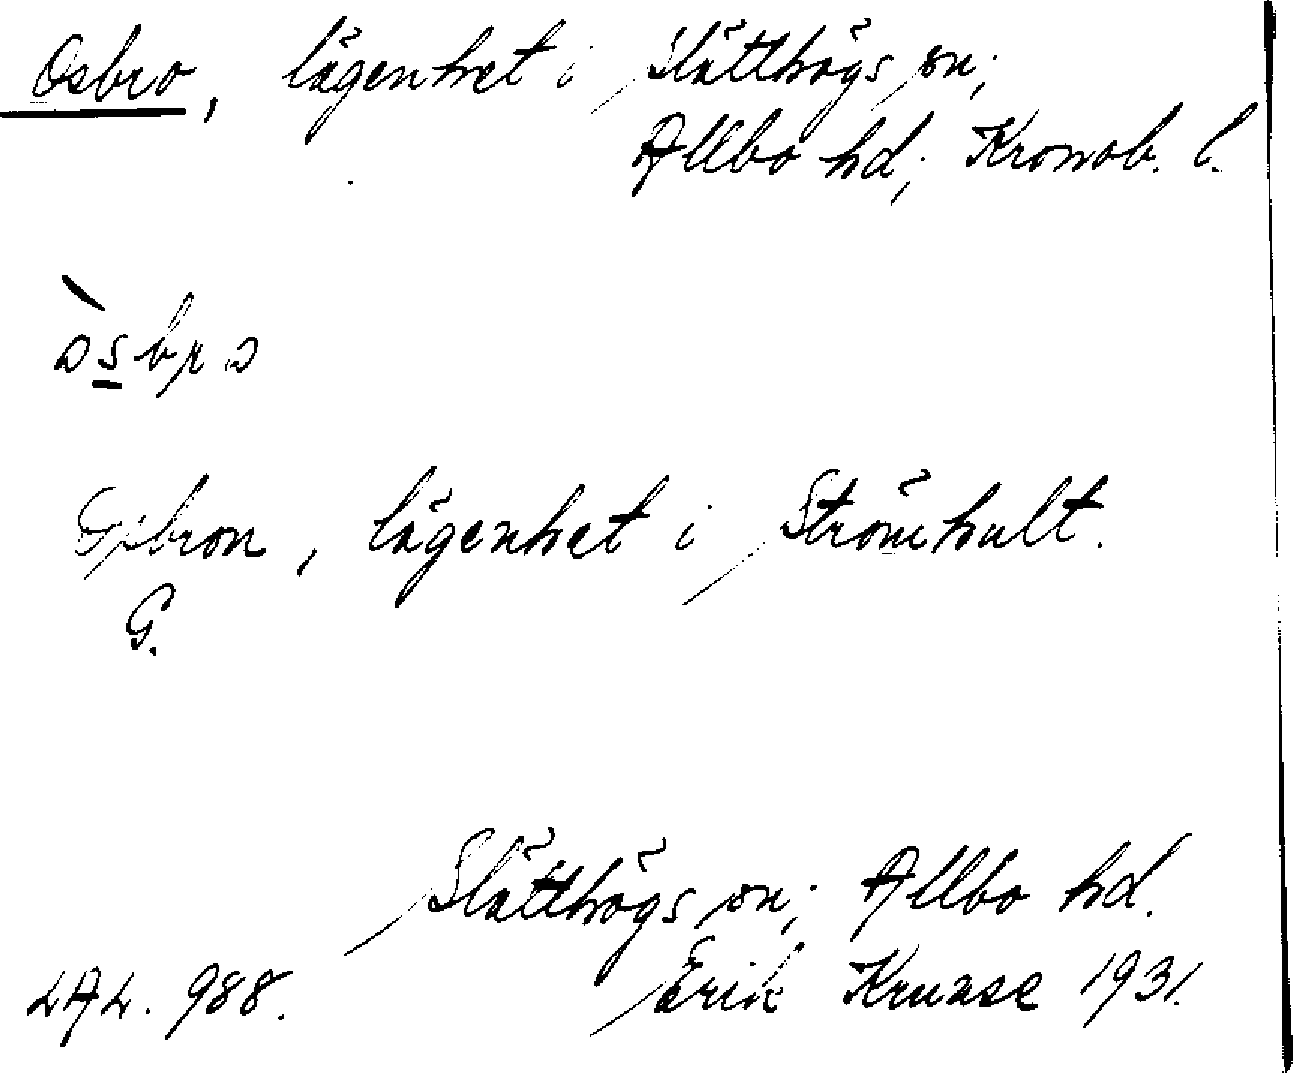 Osbro, lägenhet i Slätthögs sn;
Allbo hd; Kronob. l.
lägenhet i Strömhult.
G.
Slätthögs sn; Allbo hd.
LAL. 988. Erik Kruuse 1931.